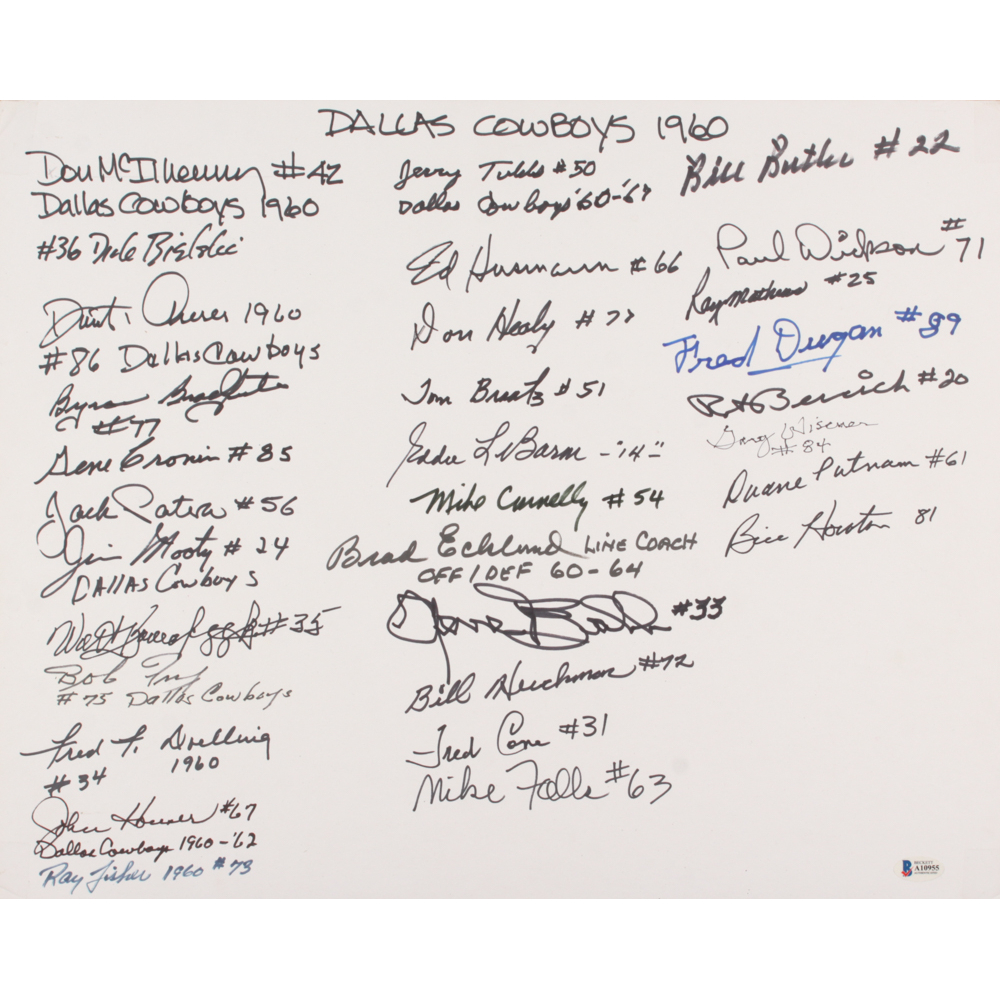 DALLAS COWBOYS 1960
Don McIlhenny #42
Dallas Cowboys 1960
#36 Dick Bielski
1960
#86 Dallas Cowboys
Byron Bradfute
#77
Gene Cronin #85
Jack Patera #56
Jim Mooty #24
DALLAS Cowboys
Walt Kowalczyk #35
Bob Fry
#75 Dallas Cowboys
Fred F. Doelling
1960
#34
John Houser #67
Dallas Cowboys 1960-'62
Ray Fisher 1960 #73
Jerry Tubbs #50
Dallas Cowboys '60-'67
Ed Husmann #66
Don Healy #77
Tom Braatz #51
Eddie LeBaron -"14"-
Mike Connelly #54
Brad Ecklund LINE COACH
OFF/DEF 60-64
#33
Bill Herchman #72
Fred Cone #31
Mike Falls #63
Bill Butler #22
Paul Dickson #71
Ray Mathews #25
Fred Dugan #89
Bercich #20
Gary Wisener
#84
Duane Putnam #61
Bill Howton 81
BECKETT
A10955